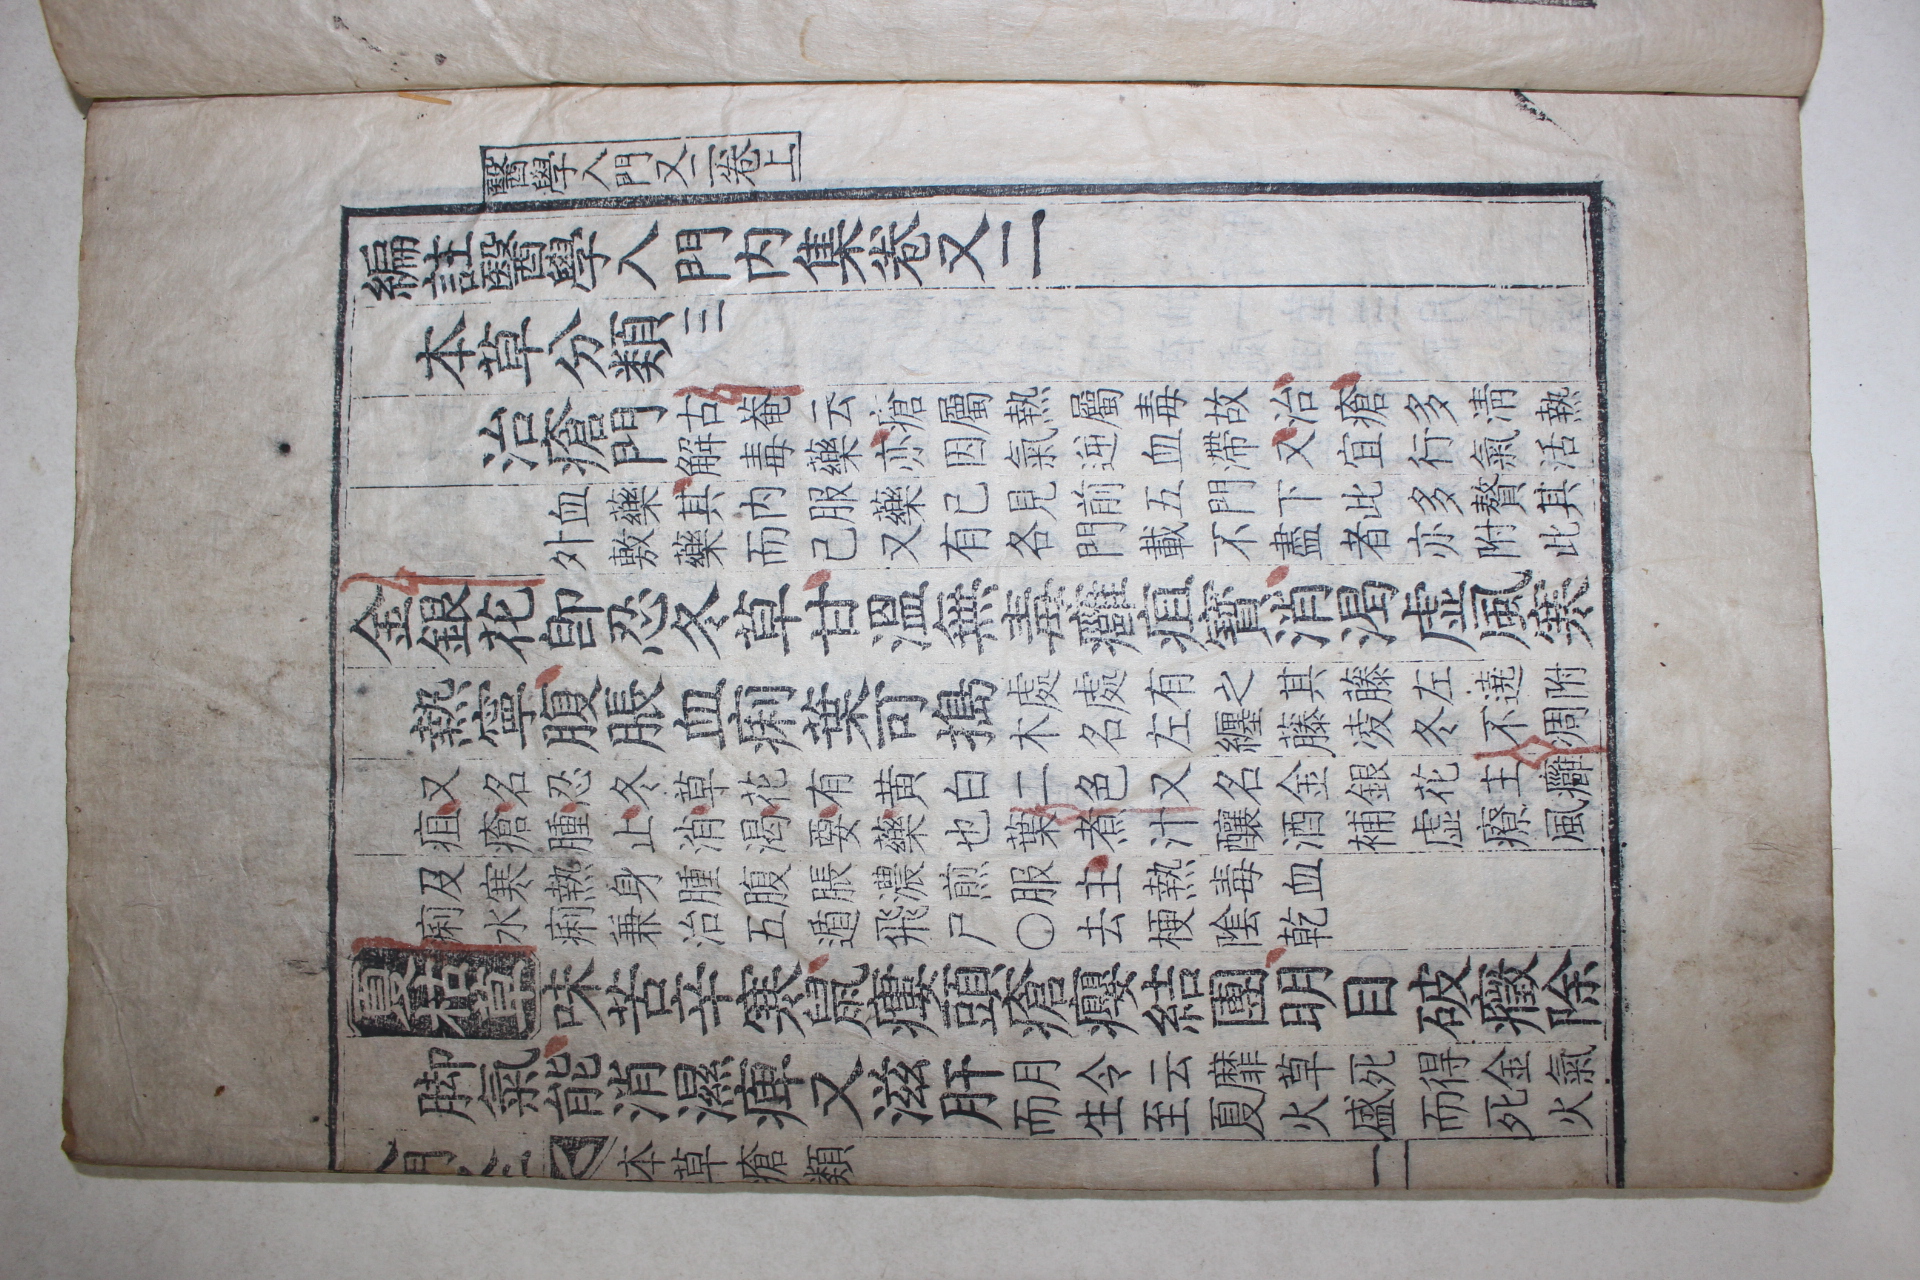 醫學入門又二卷上
編註醫學入門內集卷又二
本草分類三
治瘡門
古菴云瘡屬熱屬毒故治瘡多淸熱
解毒藥亦因氣逆血滯又宜行氣活
血藥其內服藥已見前五門下此多贅其
外敷藥而已又有各門載不盡者亦附此
金銀花卽忍冬草甘溫無毒癰疽寶消渴虛風寒
熱寧腹脹血痢葉可搗
處處有之其藤左遶附
木名左纏藤凌冬不凋
又名忍冬草花有黃白二色又名金銀花主癰
疽瘡腫止消渴要藥也葉煮汁釀酒補虛療風
及寒熱身腫腹脹濃煎服主熱毒血
痢水痢兼治五遁飛尸○去梗陰乾
夏枯草味苦辛寒鼠瘻頭瘡癭結團明目破癥除
脚氣能消濕痺又滋肝
月令云靡草死得金氣
而生至夏火盛而死火
本草瘡類
一